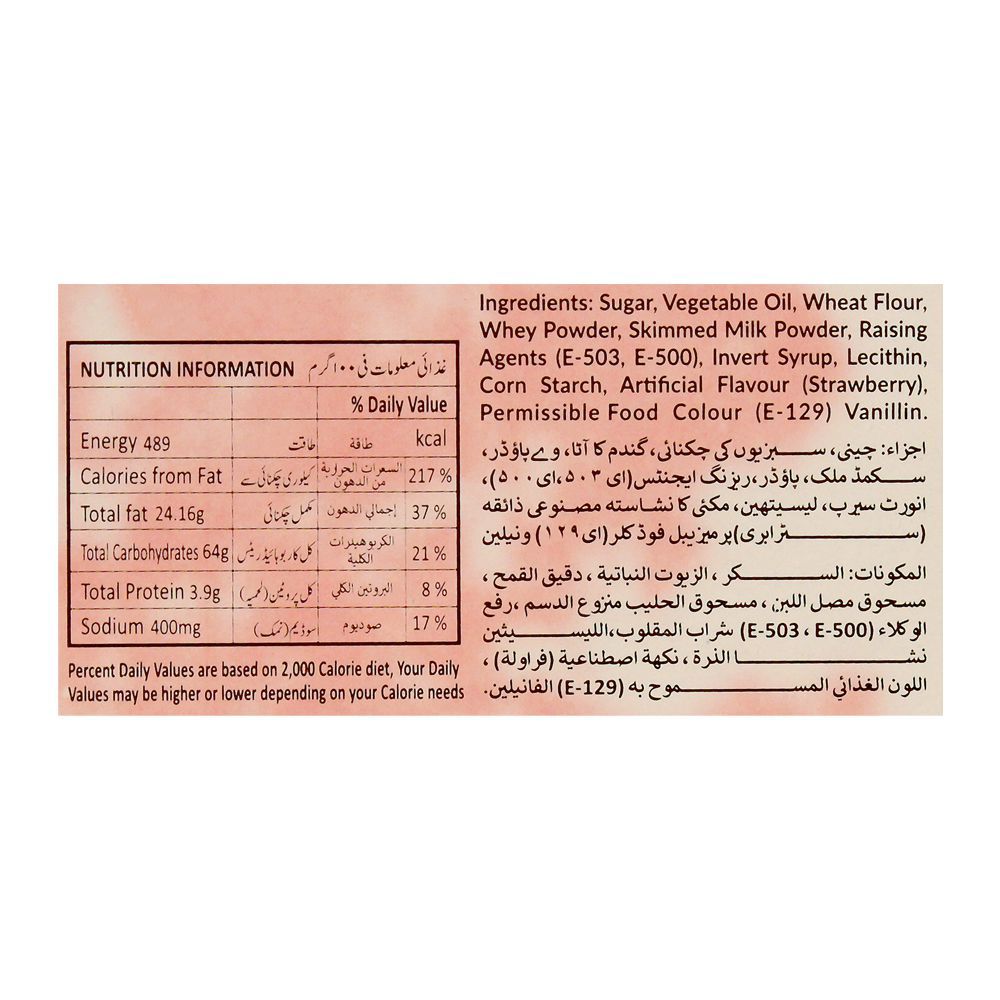 NUTRITION INFORMATION غذائی معلومات فی ۱۰۰ گرم
% Daily Value
Energy 489 طاقت طاقة kcal
Calories from Fat کیلوری چکنائی سے السعرات الحرارية من الدهون 217 %
Total fat 24.16g مکمل چکنائی إجمالي الدهون 37 %
Total Carbohydrates 64g کل کاربوہائیڈریٹس الكربوهيدرات الكلية 21 %
Total Protein 3.9g کل پروٹین (لحمیہ) البروتين الكلي 8 %
Sodium 400mg سوڈیم (نمک) صوديوم 17 %
Percent Daily Values are based on 2,000 Calorie diet, Your Daily
Values may be higher or lower depending on your Calorie needs
Ingredients: Sugar, Vegetable Oil, Wheat Flour,
Whey Powder, Skimmed Milk Powder, Raising
Agents (E-503, E-500), Invert Syrup, Lecithin,
Corn Starch, Artificial Flavour (Strawberry),
Permissible Food Colour (E-129) Vanillin.
اجزاء: چینی، سبزیوں کی چکنائی، گندم کا آٹا، وے پاؤڈر،
سکمڈ ملک، پاؤڈر، ریزنگ ایجنٹس (ای ۵۰۳، ای ۵۰۰)،
انورٹ سیرپ، لیسیتھین، مکئی کا نشاستہ مصنوعی ذائقہ
(سٹرابری) پرمیزیبل فوڈ کلر (ای ۱۲۹) ونیلین
المكونات: السكر ، الزيوت النباتية ، دقيق القمح ،
مسحوق مصل اللبن ، مسحوق الحليب منزوع الدسم ،رفع
الوكلاء (E-503 ، E-500) شراب المقلوب،الليسيثين
نشا الذرة ، نكهة اصطناعية (فراولة) ،
اللون الغذائي المسموح به (E-129) الفانيلين.